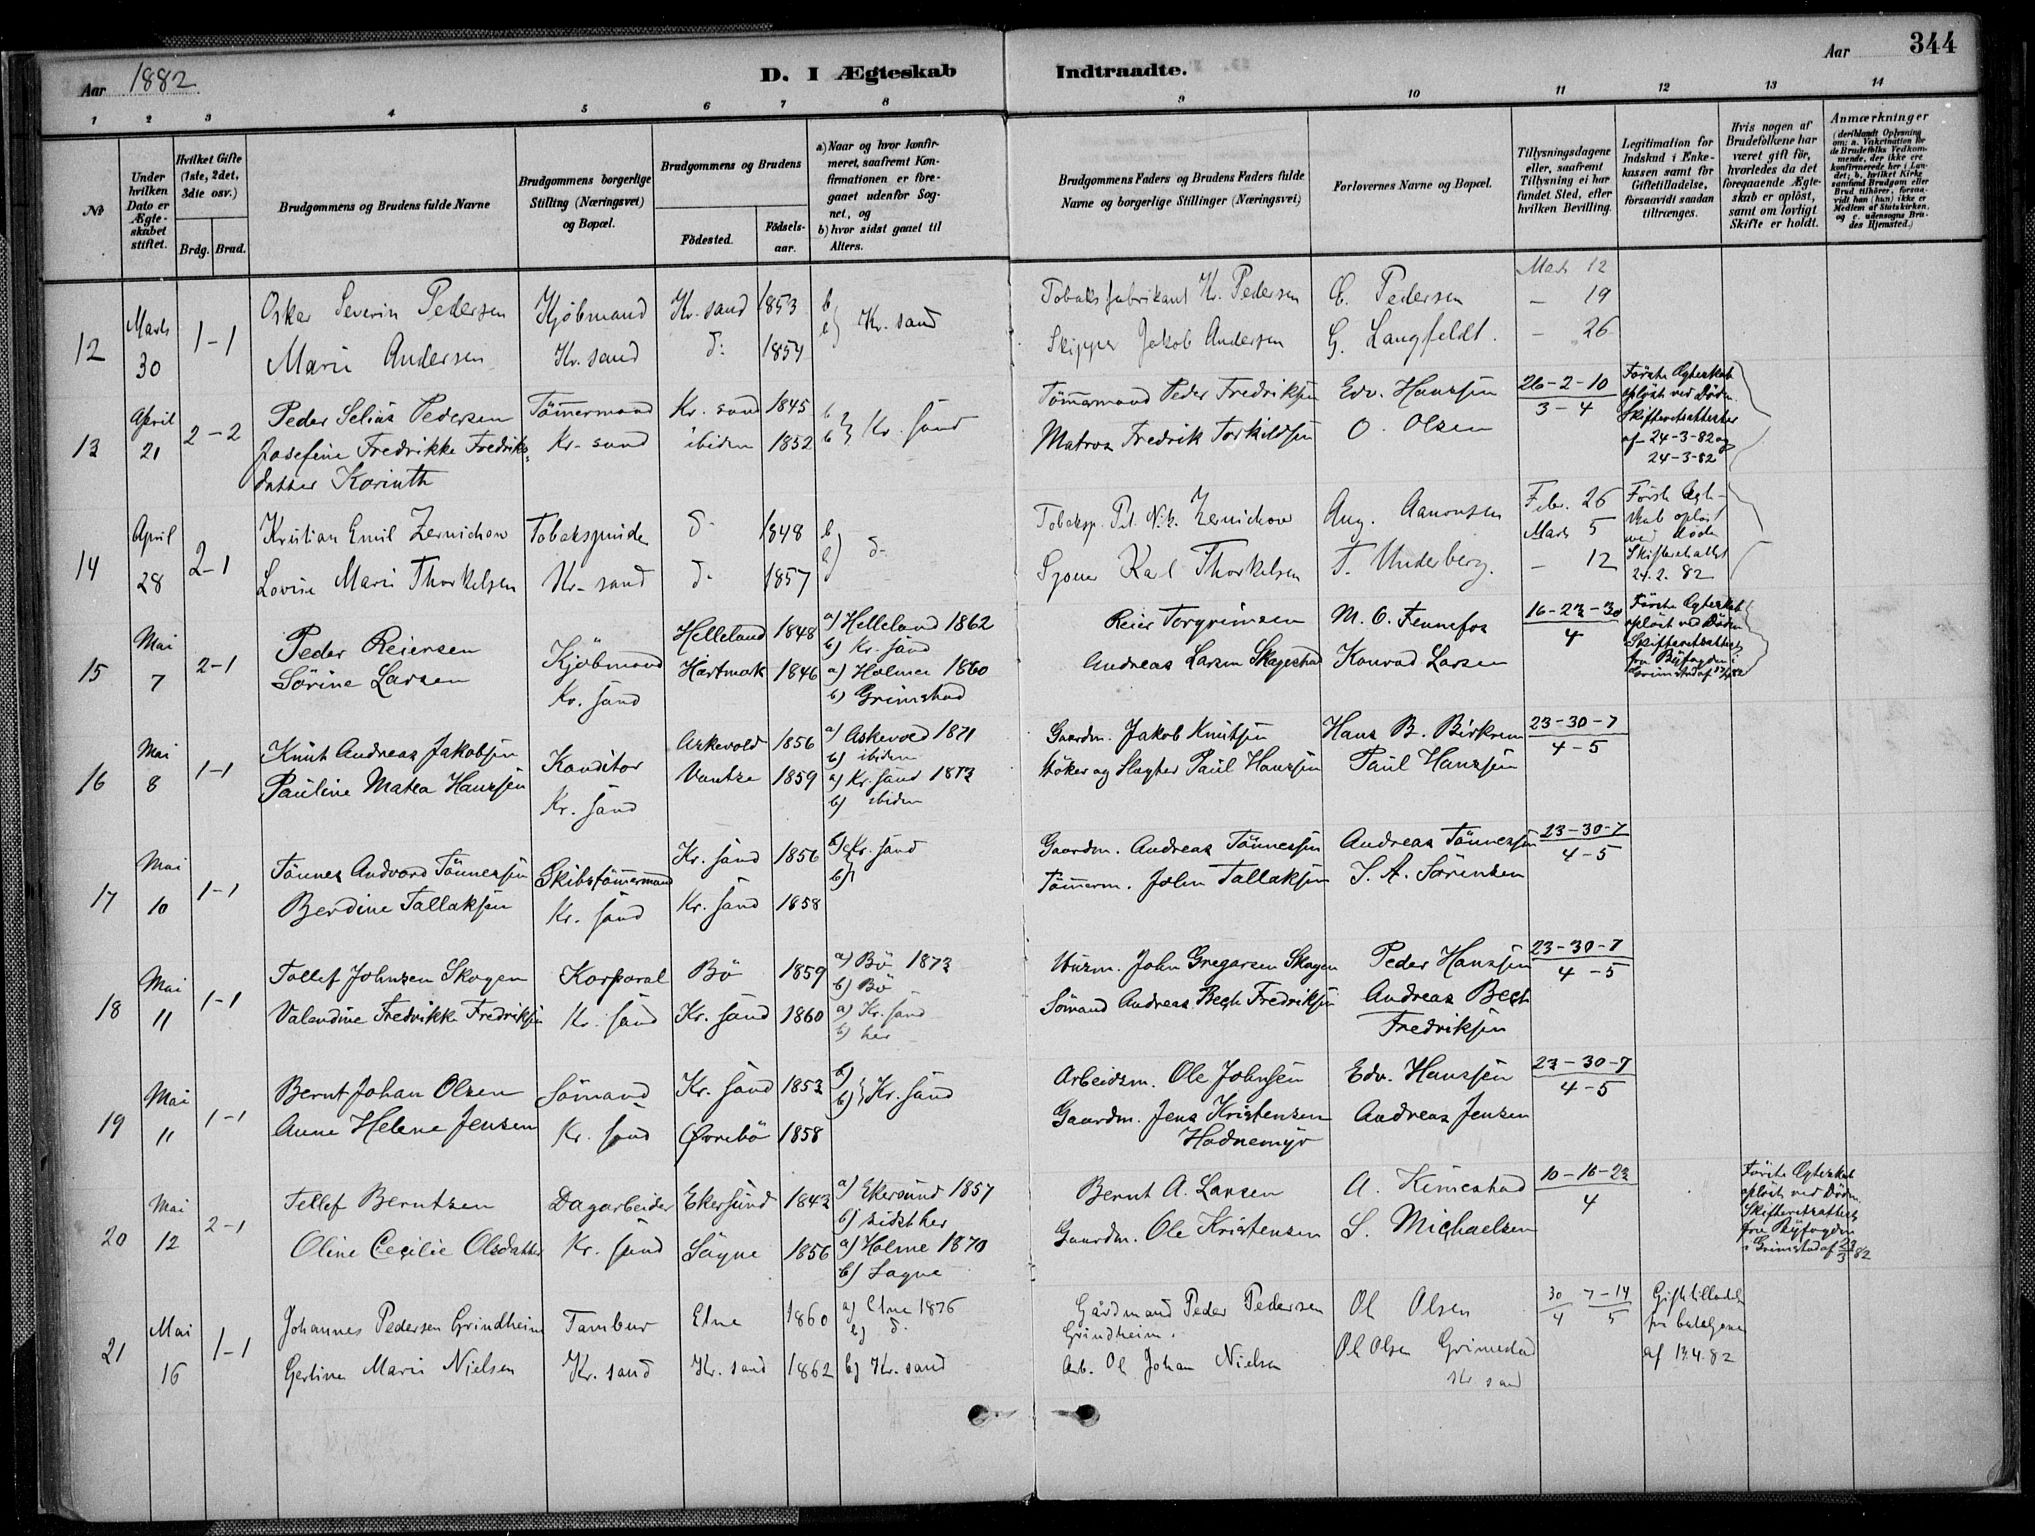 Aar 1882
D. I Ægteskab Indtraadte.
Aar 344
1 2 3 4 5 6 7 8 9 10 11 12 13 14
No
Under hvilken Dato er Ægteskabet stiftet.
Hvilket Gifte (1ste, 2det, 3die osv.)
Brdg. Brud.
Brudgommens og Brudens fulde Navne
Brudgommens borgerlige Stilling (Næringsvei) og Bopæl.
Brudgommens og Brudens
Födested.
Födselsaar.
a) Naar og hvor konfirmeret, saafremt Konfirmationen er foregaaet udenfor Sognet, og
b) hvor sidst gaaet til Alters.
Brudgommens Faders og Brudens Faders fulde Navne og borgerlige Stillinger (Næringsvei)
Forlovernes Navne og Bopæl.
Tillysningsdagene eller, saafremt Tillysning ei har fundet Sted, efter hvilken Bevilling.
Legitimation for Indskud i Enkekassen samt for Giftetilladelse, forsaavidt saadan tiltrænges.
Hvis nogen af Brudefolkene har været gift för, hvorledes da det foregaaende Ægteskab er oplöst, samt om lovligt Skifte er holdt.
Anmærkninger
(deriblandt Oplysning om: a. Vakcination for de Brudefolks Vedkommende, der ikke ere konfirmerede her i Landet; b. hvilket Kirkesamfund Brudgom eller Brud tilhörer, forsaavidt han (hun) ikke er Medlem af Statskirken, og c. udensogns Brudes Hjemsted.)
12 Marts 30 1-1 Oskar Severin Pedersen Kjöbmand Kr. sand 1853 b) Kr. sand Tobaksfabrikant Kr. Pedersen E. Pedersen Marts 12 – 19
Marie Andersen Kr. sand d: 1854 Skipper Jakob Andersen G. Langfeldt. – 26
13 April 21 2-2 Peder Selius Pedersen Tömmermand Kr. sand 1845 b) Kr. sand Tömmermand Peder Fredriksen Edv. Hanssen 26-2-10 / 3-4 Förste Ægteskab oplöst ved Döden. Skifteretsattester af 24-3-82 og 24-3-82
Josefine Fredrikke Fredriksdatter Korinth Kr. sand ibidem 1852 b) Matros Fredrik Torkildsen O. Olsen
14 April 28 2-1 Kristian Emil Zernichow Tobakspinder d- 1848 b) d- Tobaksp. Zernichow Aug. Aanonsen Febr. 26 Marts 5 Förste Ægteskab oplöst ved Döden Skifteretsattest 24. 2. 82
Lovise Marie Thorkelsen Kr. sand d- 1857 Karl Thorkelsen T. Underberg. – 12
15 Mai 7 2-1 Peder Reiersen Kjöbmand Helleland 1848 a) Helleland 1862 b) Kr. sand Reier Torgrimsen M. O. Fennefos 16-23-30 / 4 Förste Ægteskab oplöst ved Döden Skifteretsattest fra Byfogden i Grimstad af
Sörine Larsen Kr. sand Hartmark 1846 a) Holme 1860 b) Grimstad Andreas Larsen Skagestad Konrad Larsen
16 Mai 8 1-1 Knut Andreas Jakobsen Konditor Askevold 1856 a) Askevold 1871 b) ibidem Gaardm. Jakob Knutsen Hans B. Birkrem 23-30-7 / 4-5
Pauline Matea Hanssen Kr. sand Vantze 1859 a) Kr. sand 1873 b) ibidem Höker og Slagter Paul Hanssen Paul Hanssen
17 Mai 10 1-1 Tönnes Andvord Tönnessen Skibstömmermand Kr. sand 1856 b) Kr. sand Gaardm. Andreas Tönnessen Andreas Tönnessen 23-30-7 / 4-5
Berdine Tallaksen Kr. sand Kr. sand 1858 b) Tömmerm. John Tallaksen S. A. Sörensen
18 Mai 11 1-1 Tollef Johnsen Skogen Korporal Bö 1859 a) Bö 1873 b) Bö Husm. John Gregarsen Skogen Peder Hanssen 23-30-7 / 4-5
Valendine Fredrikke Fredriksen Kr. sand Kr. sand 1860 a) Kr. sand b) her Sömand Andreas Bech Fredriksen Andreas Bech Fredriksen
19 Mai 11 1-1 Bernt Johan Olsen Sömand Kr. sand 1853 b) Kr. sand Arbeidsm. Ole Johnsen Edv. Hanssen 23-30-7 / 4-5
Anne Helene Jensen Kr. sand Øvrebö 1858 b) Gaardm. Jens Kristensen Hodnemyr Andreas Jensen
20 Mai 12 2-1 Tellef Berntsen Dagarbeider Ekersund 1843 a) Ekersund 1857 b) sidst her Bernt A. Larsen A. Kimestad 10-16-23 / 4 Förste Ægteskab oplöst ved Döden. Skifteretsattest fra Byfogden i Grimstad af 23/3 82
Oline Cecilie Olsdatter Kr. sand Sögne 1856 a) Holme 1870 b) Sögne Gaardm. Ole Kristensen S. Michaelsen
21 Mai 16 1-1 Johannes Pedersen Grindheim Tambur Etne 1860 a) Etne 1876 b) d. Gårdmand Peder Pedersen Grindheim. Ol Olsen 30/4 7-14/5 Giftetilladelse fra af 14.4.82
Gerline Marie Nielsen Kr. sand Kr. sand 1862 b) Kr. sand Arb. Ol Johan Nielsen Ol Olsen Grimestad Kr sand